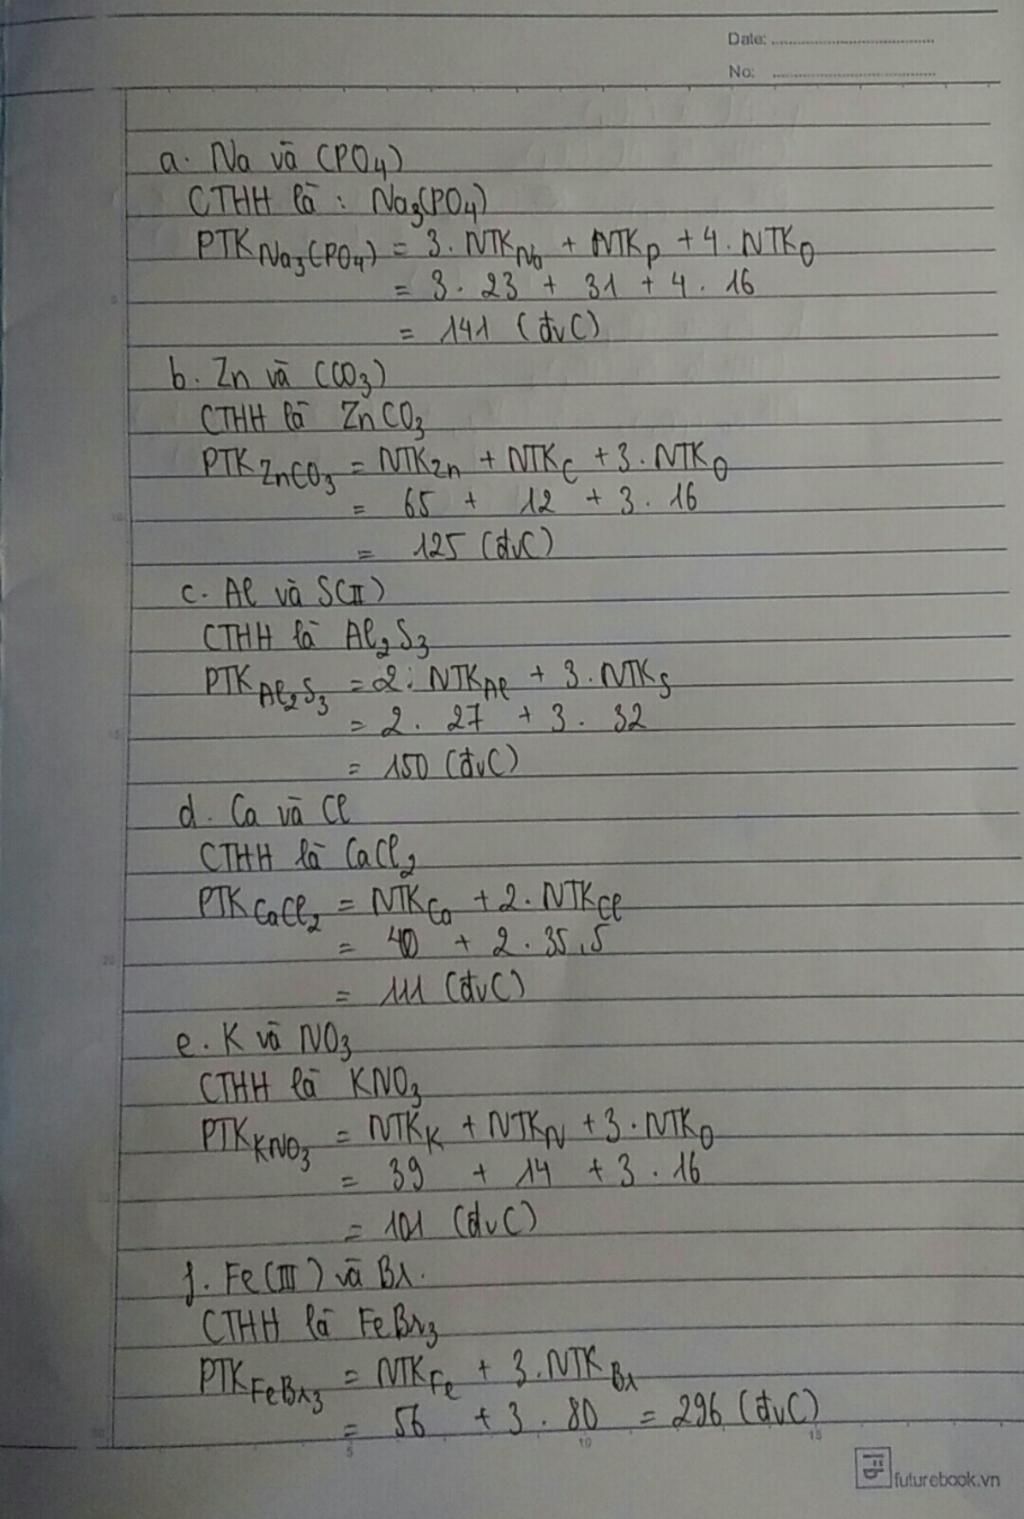 Date:
No:
a. Na và (PO4)
CTHH là : Na3(PO4)
PTK Na3(PO4) = 3. NTK Na + NTK P + 4. NTK O
= 3. 23 + 31 + 4. 16
= 141 (đvC)
b. Zn và (CO3)
CTHH là ZnCO3
PTK ZnCO3 = NTK Zn + NTK C + 3. NTK O
= 65 + 12 + 3. 16
= 125 (đvC)
c. Al và S(II)
CTHH là Al2S3
PTK Al2S3 = 2. NTK Al + 3. NTK S
= 2. 27 + 3. 32
= 150 (đvC)
d. Ca và Cl
CTHH là CaCl2
PTK CaCl2 = NTK Ca + 2. NTK Cl
= 40 + 2. 35,5
= 111 (đvC)
e. K và NO3
CTHH là KNO3
PTK KNO3 = NTK K + NTK N + 3. NTK O
= 39 + 14 + 3. 16
= 101 (đvC)
f. Fe(III) và Br.
CTHH là FeBr3
PTK FeBr3 = NTK Fe + 3. NTK Br
= 56 + 3. 80 = 296 (đvC)
5 10 15
futurebook.vn